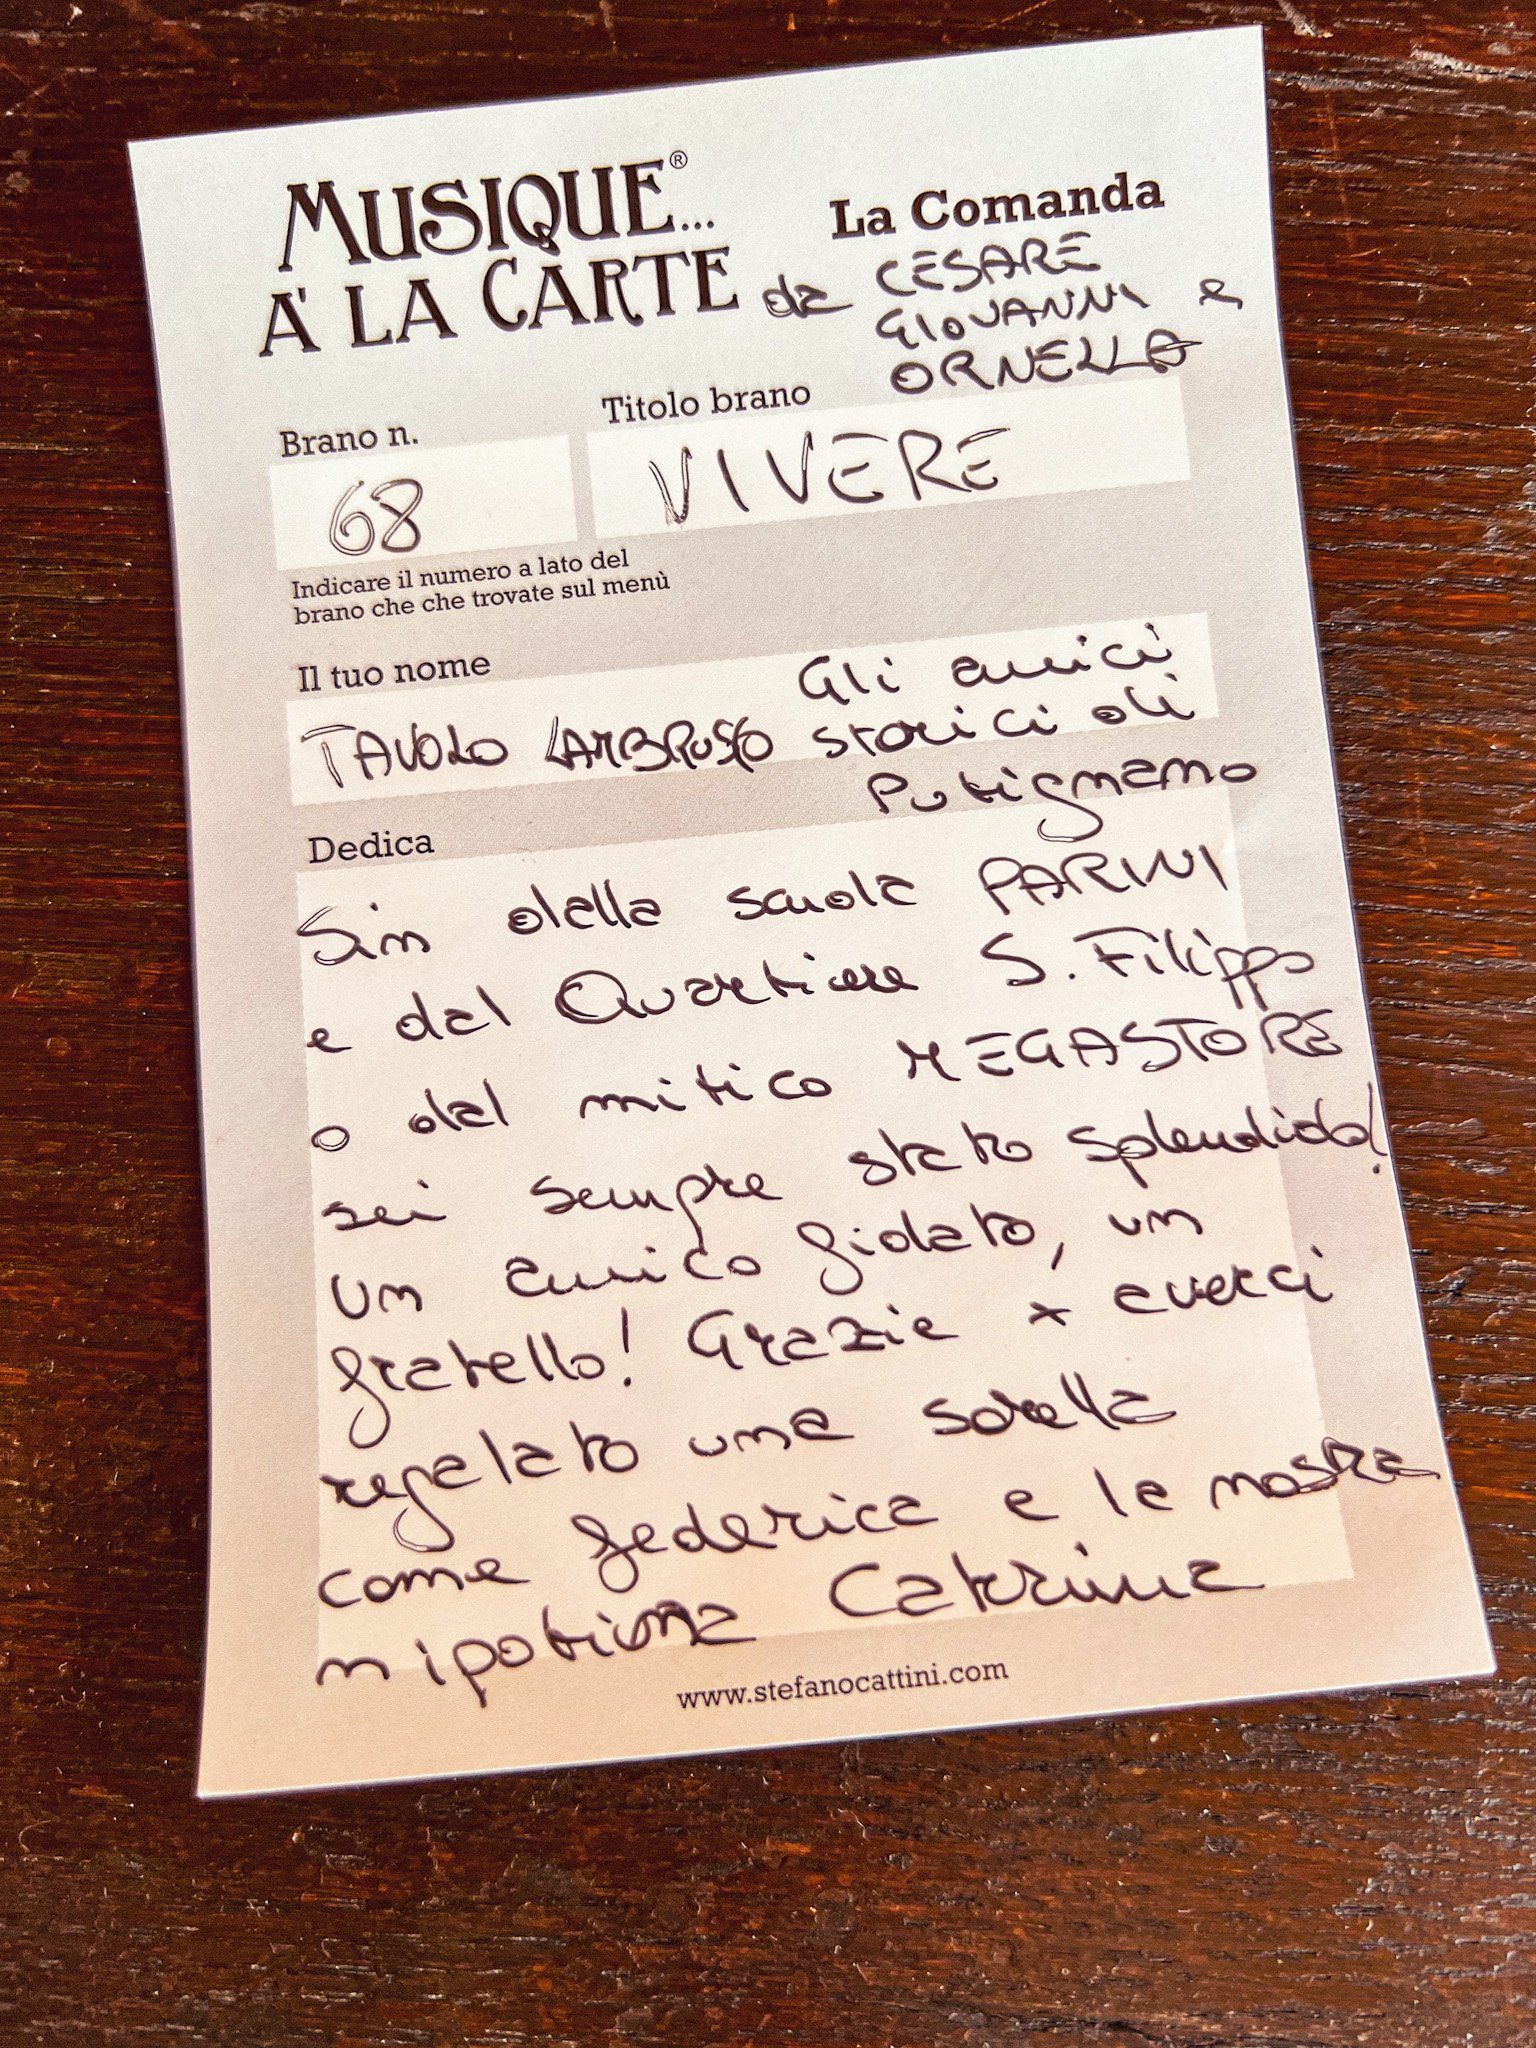 MUSIQUE...®
A' LA CÀRTE
La Comanda
da CESARE
GIOVANNI e
ORNELLA
Brano n.
Titolo brano
68
VIVERE
Indicare il numero a lato del
brano che che trovate sul menù
Il tuo nome
TAVOLO LAMBRUSCO
Gli amici
storici di
Putignano
Dedica
Sin della scuola PARINI
e dal Quartiere S. Filippo
o dal mitico MEGASTORE
sei sempre stato splendido!
un amico fidato, un
fratello! Grazie x averci
regalato una sorella
come federica e la nostra
nipotina Caterina
www.stefanocattini.com